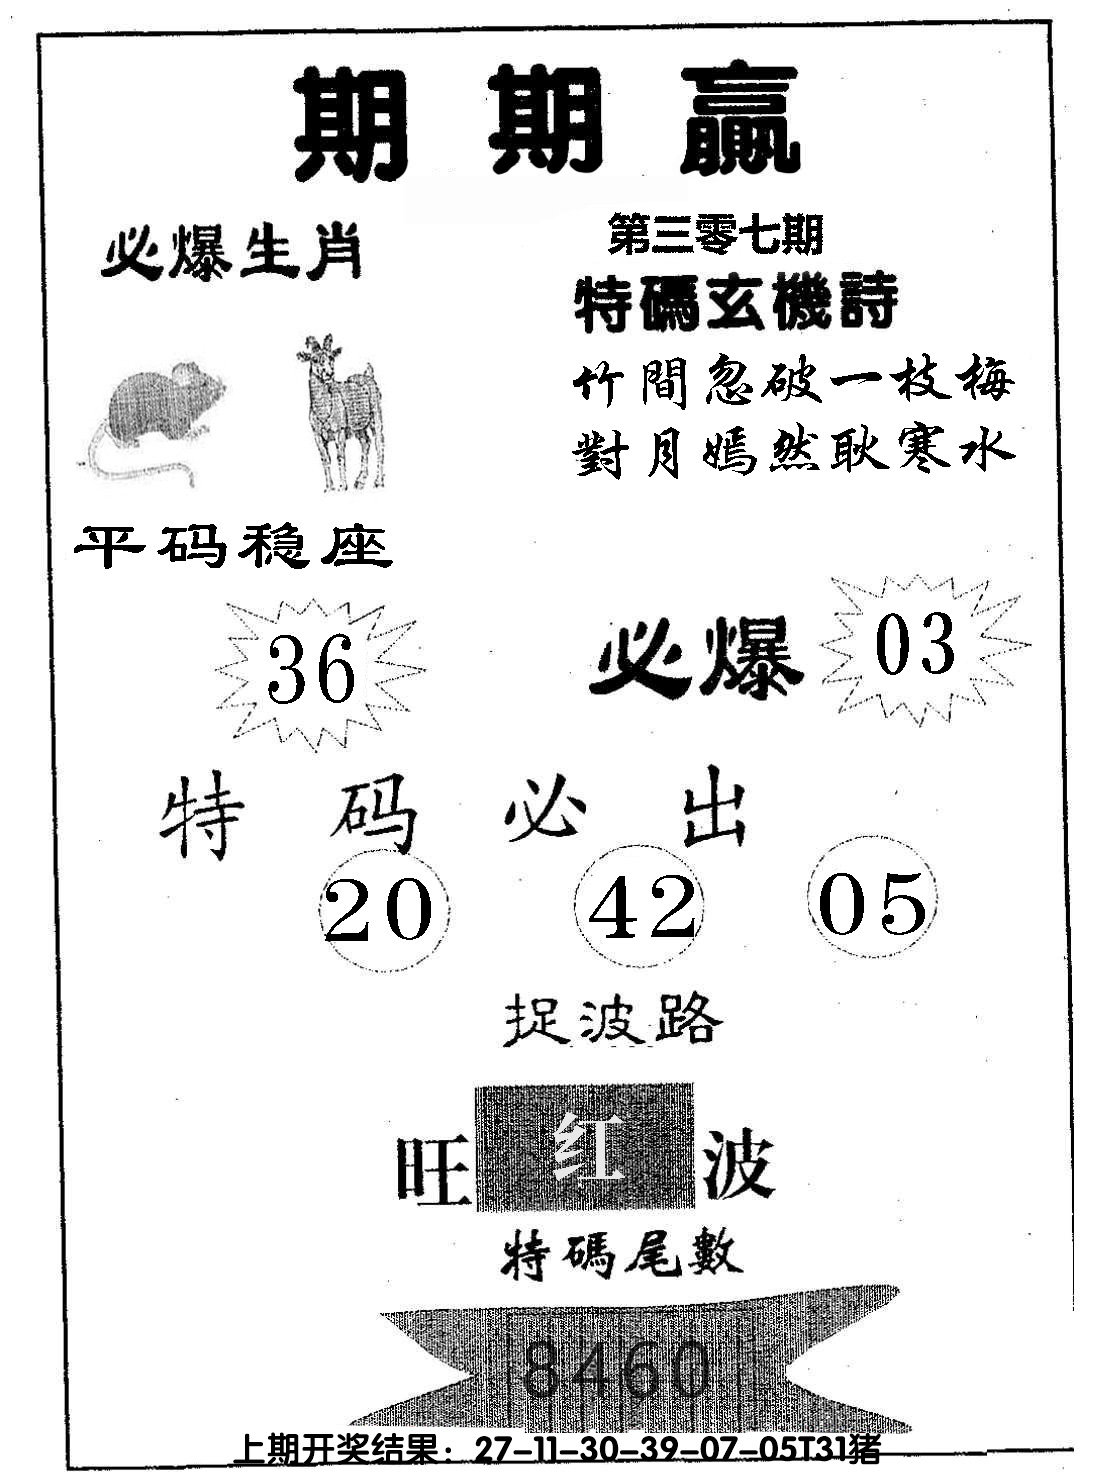 期期赢
必爆生肖
第三零七期
特碼玄機詩
竹間忽破一枝梅
對月嫣然耿寒水
平码稳座
36
必爆
03
特码必出
20 42 05
捉波路
旺红波
特碼尾數
8460
上期开奖结果：27-11-30-39-07-05T31猪